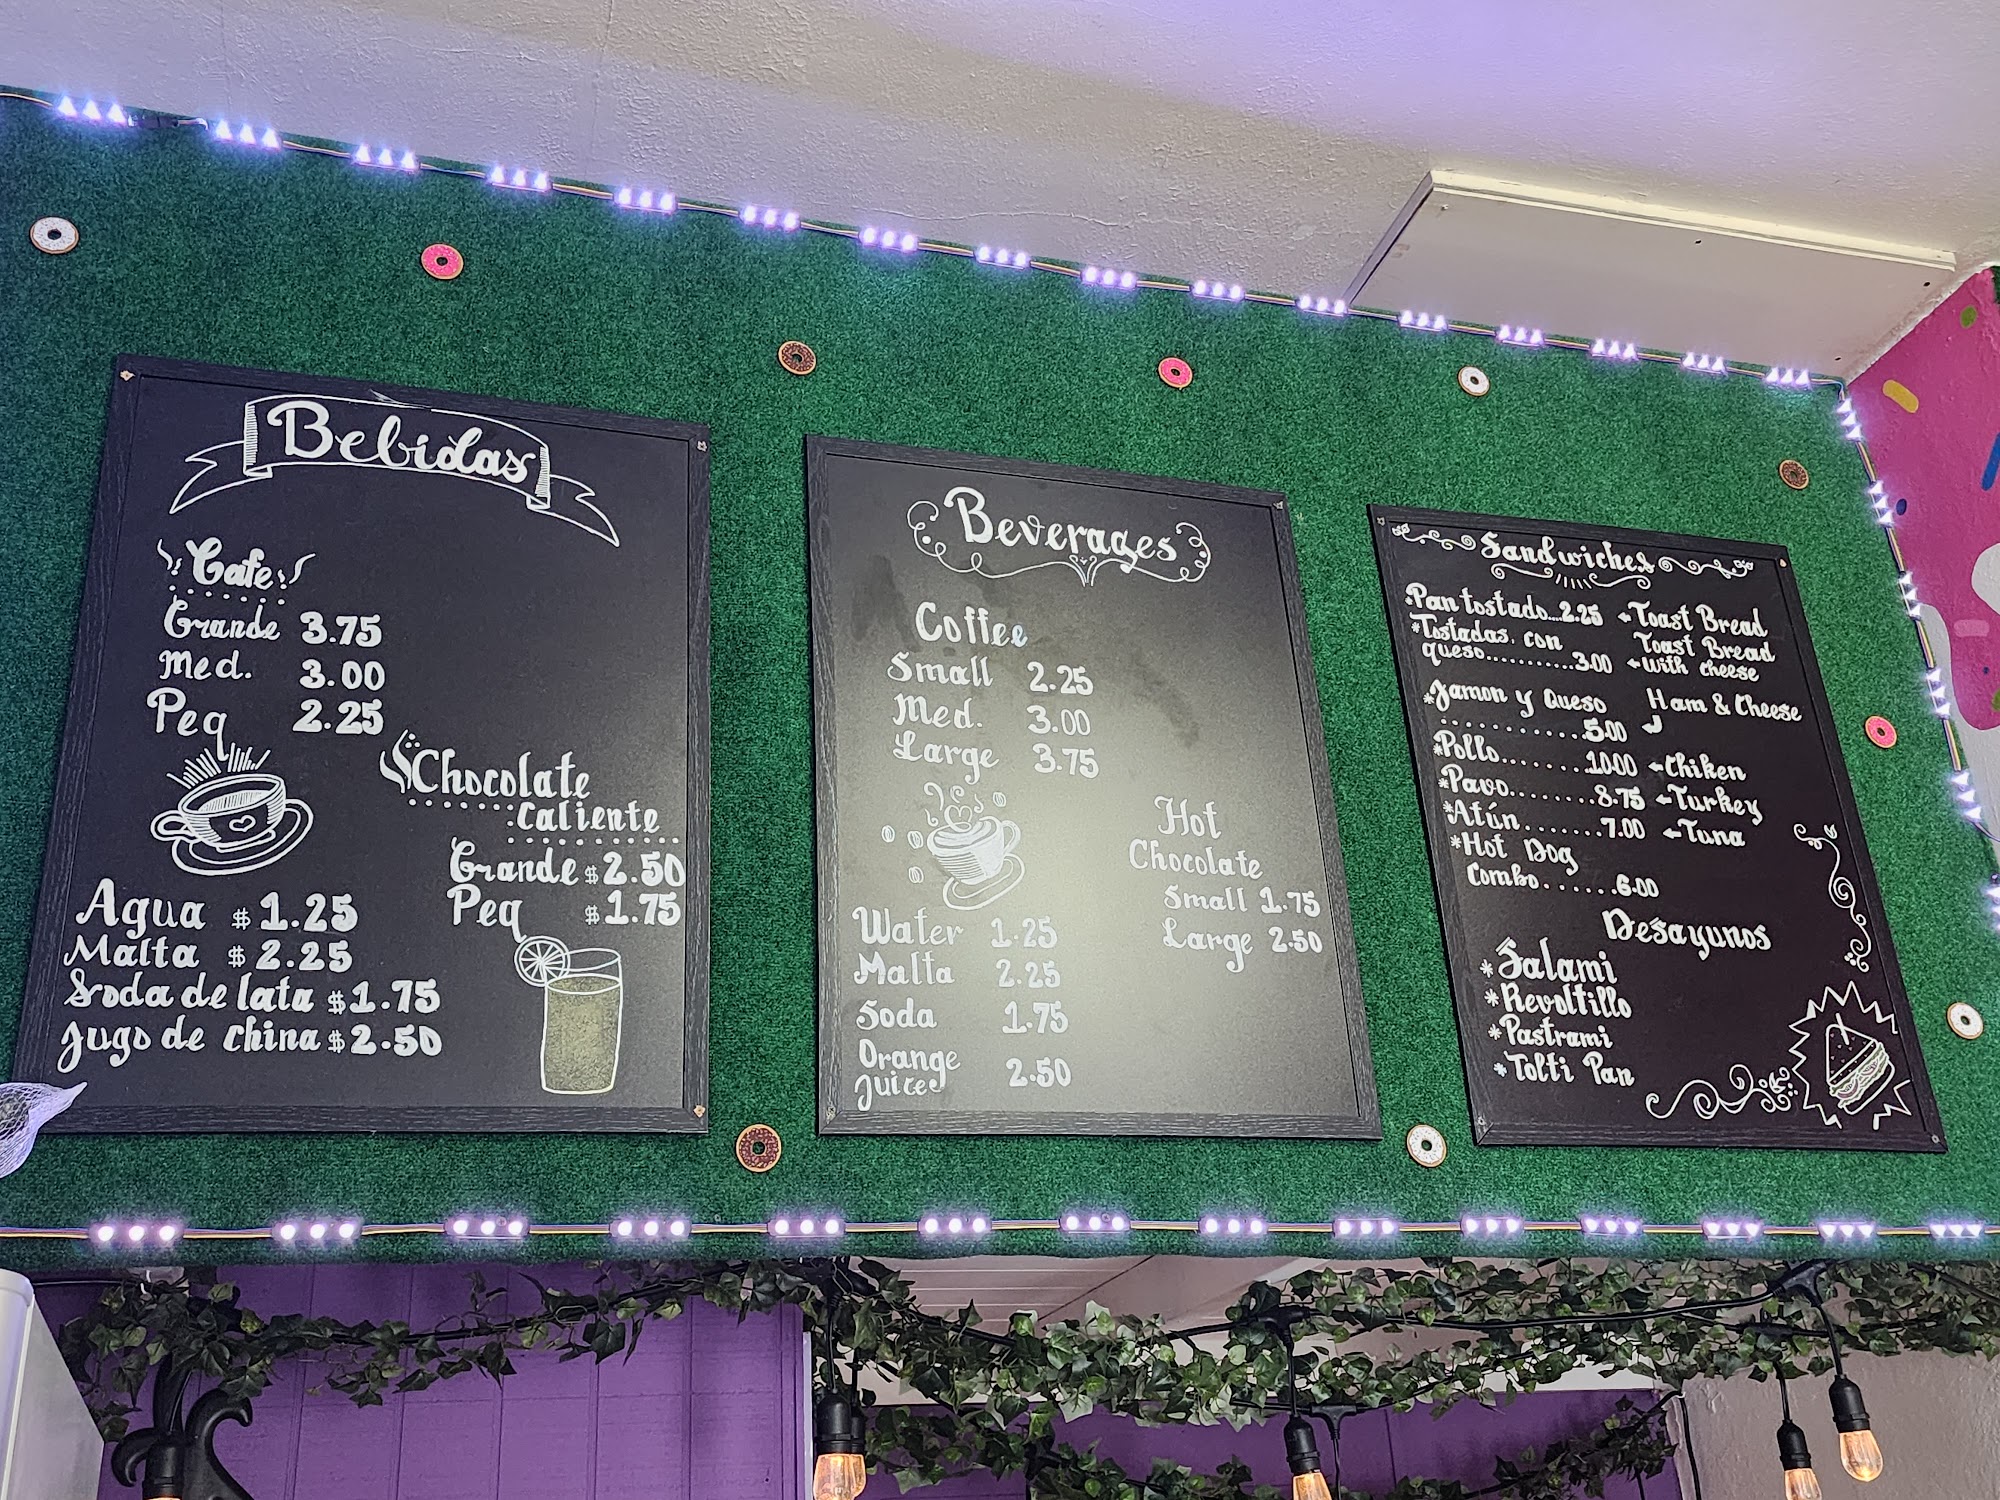 Bebidas
Cafe
Grande 3.75
Med. 3.00
Peq 2.25
Chocolate
Caliente
Grande $2.50
Peq $1.75
Agua $1.25
Malta $2.25
Soda de lata $1.75
Jugo de china $2.50
Beverages
Coffee
Small 2.25
Med. 3.00
Large 3.75
Hot
Chocolate
Small 1.75
Large 2.50
Water 1.25
Malta 2.25
Soda 1.75
Orange
Juice 2.50
Sandwiches
*Pan tostado....2.25 ←Toast Bread
*Tostadas con Toast Bread
queso...........3.00 ←with cheese
*Jamon y Queso Ham & Cheese
........5.00
*Pollo........10.00 ←Chiken
*Pavo........8.75 ←Turkey
*Atún.......7.00 ←Tuna
*Hot Dog
Combo......6.00
Desayunos
*Salami
*Revoltillo
*Pastrami
*Tolti Pan